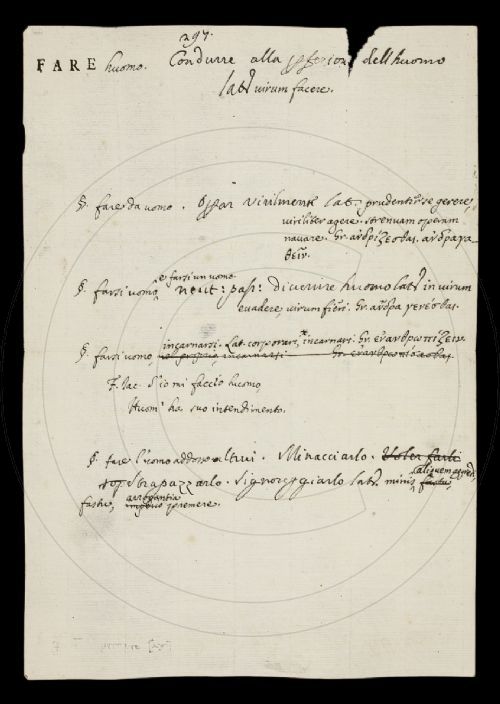 297.
FARE huomo. Condurre alla perfezion dell'huomo
lat. virum facere.
§. fare da uomo. Oprar virilmente lat. prudenter se gerere,
viriliter agere. strenuam operam
navare. Gr. ἀνδρίζεσθαι. ἀνδραγα-
θεῖν.
e farsi un uomo.
§. farsi uomo, neut: pass: Divenire huomo lat. in virum
evadere, virum fieri. Gr. ἄνδρα γενέσθαι.
incarnarsi. Lat. corporari, incarnari. Gr. ἐνανθρωπίζειν.
§. farsi uomo, incarnarsi Gr. ἐνανθρωπίσασθαι.
F. Iac. S'io mi faccio huomo,
Huom' ha suo intendimento.
§. fare l'uomo addosso altrui. Minacciarlo. Voler farli
aliquem aggredi,
Strapazzarlo. Signoreggiarlo lat. minis
arrogantia
fastu, premere.